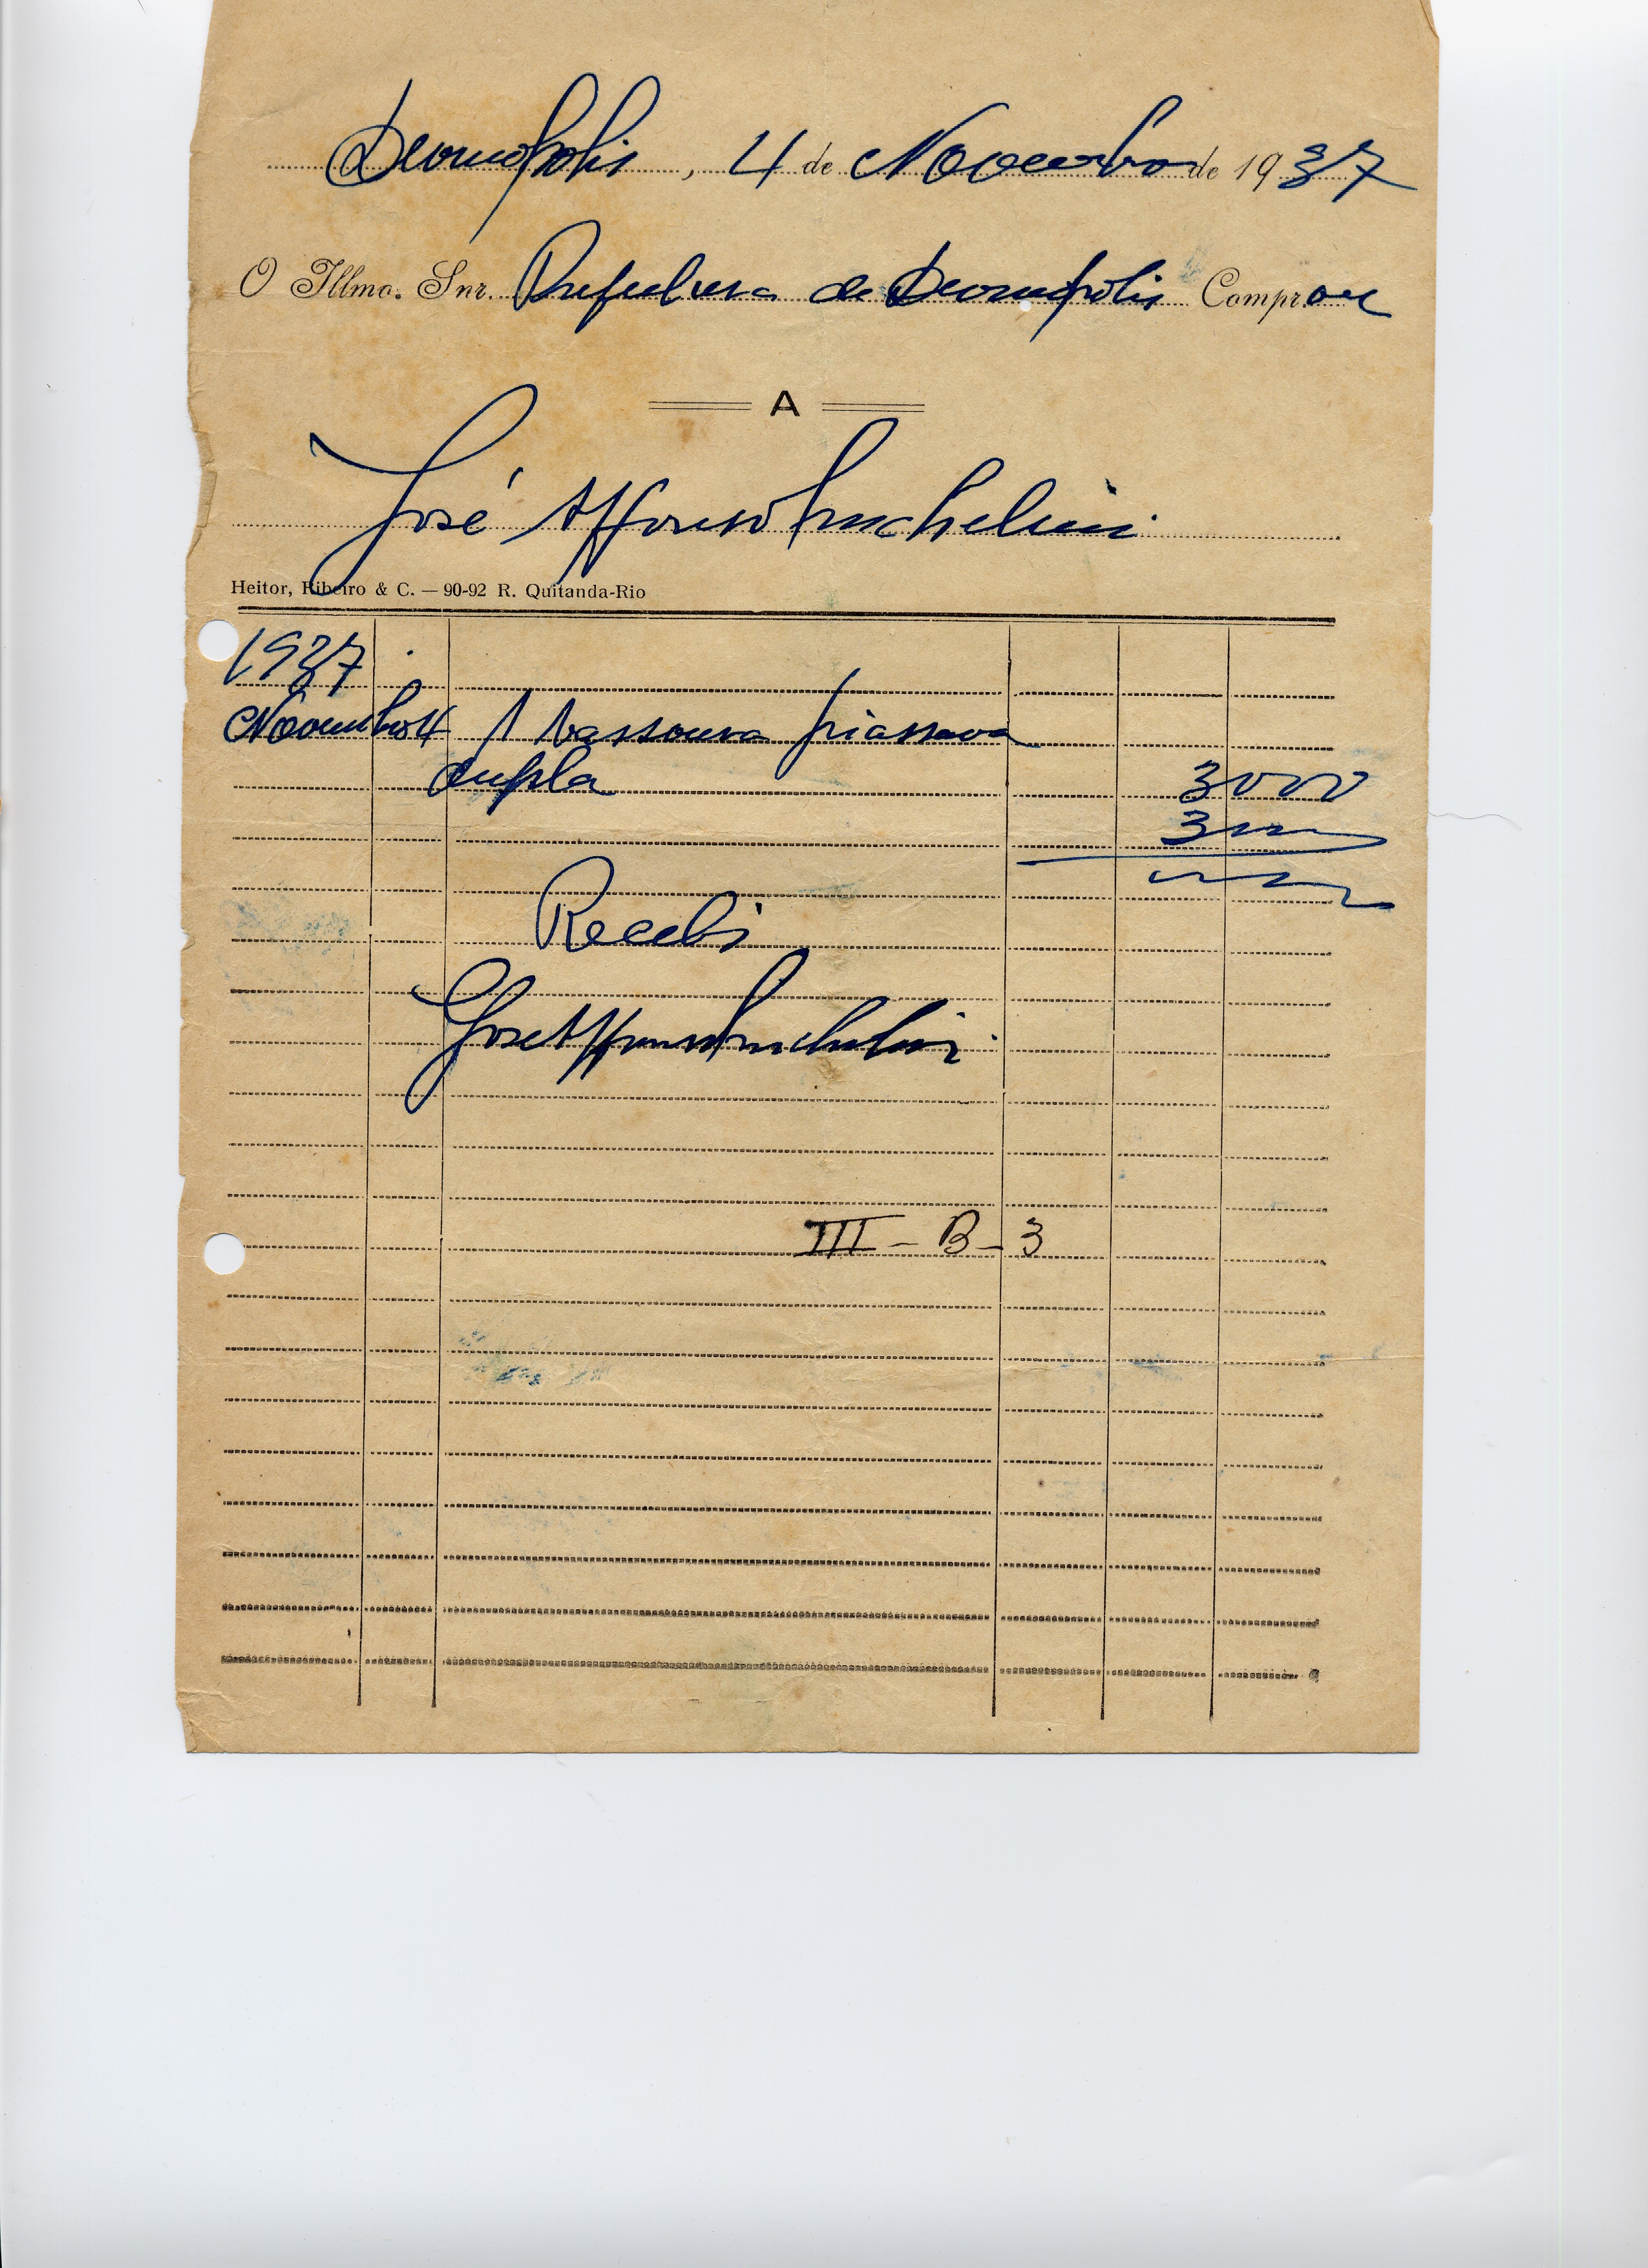 Divinopolis, 4 de Novembro de 1937
O Illmo. Snr. Prefeitura de Divinopolis Comprou
A
José Affonso Michelini
Heitor, Ribeiro & C. — 90-92 R. Quitanda-Rio
1937
Novembro 4 1 vassoura piassava
dupla 3000
3
Recebi
José Affonso Michelini
III - B - 3